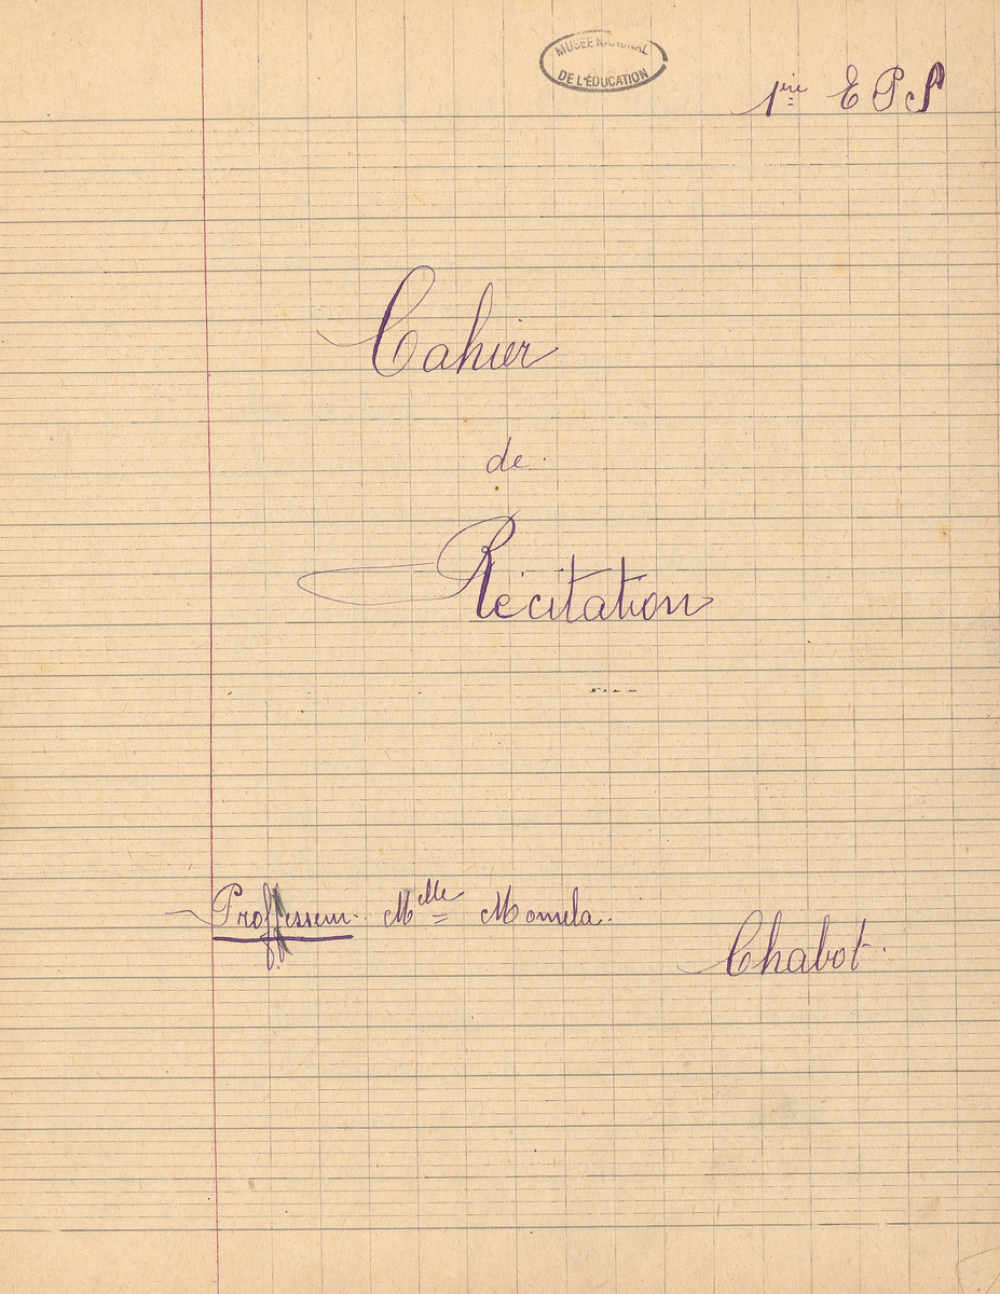 MUSÉE NATIONAL
DE L'ÉDUCATION
1ère E P S
Cahier
de
Récitation
Professeur Melle
Chabot